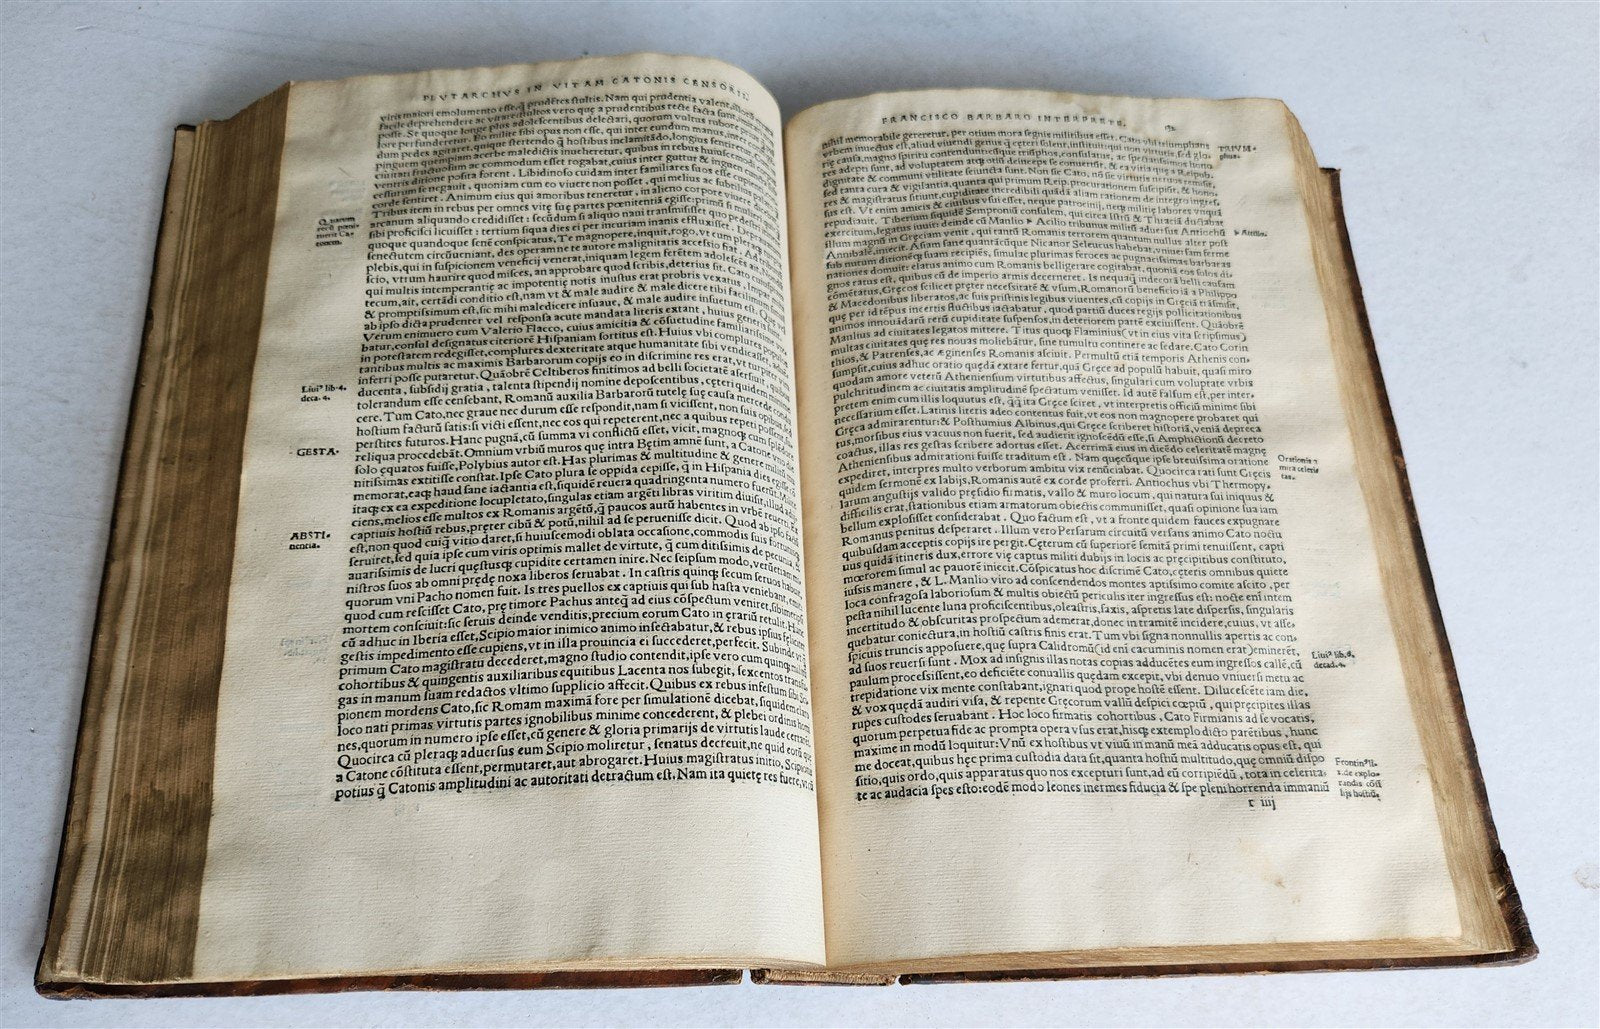 PLVTARCHVS IN VITAM CATONIS CENSORII.
viris maiori emolumento esse, ꝗ̃ prudētes stultis. Nam qui prudentia valent,
facile deprehendere ac vitare stultos vero quę a prudentibus recte facta sunt,
posse. Se quoque longe plus adolescentibus delectari, quorum vultus rubore
fore perfunderetur. Eo milite sibi opus non esse, qui inter eundum manus, inter
dum pedes agitaret, quique stertendo ꝗ̃ hostibus inclamādo, longius sentiretur.
pinguem quempiam acerbe maledictis inueheretur, quibus in rebus huiuscemodi
ciuitati fructuosum ac commodum esset rogabat, cuius inter guttur & inguina
ventris ditione posita forent. Libidinoso cuidam inter familiares suos esse cupienti
cessurum se negauit, quoniam cum eo viuere non posset, qui melius ac subtilius palato
corde sentiret. Animum eius qui amoribus teneretur, in alieno corpore viuere
Tribus item in rebus per omnes vitę suę partes pœnitentiā egisse: primū si mulieri
arcanum aliquando credidisset: secūdum si aliquo naui transmisisset quo pedestri
sibi proficisci licuisset: tertium siqua dies ei per incuriam inanis effluxisset.
quoque quandoque senē conspicatus, Te magnopere, inquit, rogo, vt cum pleraque
senectutem circūueniant, des operam ne te autore malignitatis accessio fiat. Ad
plebis, qui in suspicionem veneficij venerat, iniquam legem ferētem adolescēs ait,
scio, vtrum haurire quod misces, an approbare quod scribis, deterius sit. Cato
qui multis intemperantię ac impotentię notis inustus erat probris vexatus, Impar
tecum, ait, certādi conditio est, nam vt & male audire & male dicere tibi facillimum
& promptissimum est, sic mihi maledicere insuaue, & male audire insuetum est.
ab ipso dicta prudenter vel responsa acute mandata literis extant, huius generis
Verum enimuero cum Valerio Flacco, cuius amicitia & cōsuetudine familiarissime
batur, consul designatus citeriorē Hispaniam sortitus est. Huius vbi complures
in potestatem redegisset, complures dexteritate atque humanitate sibi vendicasset,
tantibus multis ac maximis Barbarorum copijs eo in discrimine res erat, vt turpiter
inferri posse putaretur. Quāobrē Celtiberos finitimos ad belli societatē asciuit,
ducenta, subsidij gratia, talenta stipendij nomine deposcentibus, cęteri quidem
tolerandum esse censebant, Romanū auxilia Barbarorū tutelę suę causa mercede
cere. Tum Cato, nec graue nec durum esse respondit, nam si vicissent, non suis opibus, sed
hostium facturū satis: si victi essent, nec eos qui repeterent, nec a quibus repeti posset,
perstites futuros. Hanc pugnā, cū summa vi conflictū esset, vicit, magnoꝗ cum splēdore
reliqua procedebāt. Omnium vrbiū muros quę intra Bętim amnē sunt, a Catone vno die
solo ęquatos fuisse, Polybius autor est. Has plurimas & multitudine & genere militum
nitissimas extitisse constat. Ipse Cato plura se oppida cepisse, ꝗ̃ in Hispania dies egisse
memorat, eaꝗ haud sane iactantia est, siquidē reuera quadringenta numero fuerūt.
itaꝗ ex ea expeditione locupletato, singulas etiam argēti libras viritim diuisit, illud
ciens, melios esse multos ex Romanis argētū, ꝗ̃ paucos aurū habentes in vrbē reuerti.
captiuis hostiū rebus, pręter cibū & potū, nihil ad se peruenisse dicit. Quod ab ipso
est, non quod cuiꝗ̃ vitio daret, si huiuscemodi oblata occasione, commodis suis
seruiret, sed quia ipse cum viris optimis mallet de virtute, ꝗ̃ cum ditissimis de pecunia, &
auarissimis de lucri quęstusꝗ cupidite certamen inire. Nec seipsum modo, verūetiam
nistros suos ab omni prędę noxa liberos seruabat. In castris quinꝗ secum seruos
quorum vni Pacho nomen fuit. Is tres puellos ex captiuis qui sub hasta veniebant,
quod cum rescisset Cato, prę timore Pachus anteꝗ̃ ad eius cōspectum veniret, sibimetipsi
mortem consciuit: sic seruis deinde venditis, precium eorum Cato in ęrariū retulit.
cū adhuc in Iberia esset, Scipio maior inimico animo insectabatur, & rebus ipsius
gestis impedimento esse cupiens, vt in illa prouincia ei succederet, perfecit. Subinde
primum Cato magistratu decederet, magno studio contendit, ipse vero cum quinꝗ
cohortibus & quingentis auxiliaribus equitibus Lacenta nos subegit, sexcentos transfu
gas in manum suam redactos vltimo supplicio affecit. Quibus ex rebus infestum sibi Sci
pionem mordens Cato, sic Romam maximā fore per simulationē dicebat, siquidem claro
loco nati primas virtutis partes ignobilibus minime concederent, & plebei ordinis homi
nes, quorum in numero ipse esset, cū genere & gloria primarijs de virtutis laude certarēt.
Quocirca cū pleraꝗ aduersus eum Scipio moliretur, senatus decreuit, ne quid eorū quę
a Catone cōstituta essent, permutaret, aut abrogaret. Huius magistratus initio, Scipionis
potius ꝗ̃ Catonis amplitudini ac autoritati detractum est, Nam ita quietę res fuere, vt cū
Liui⁹ lib. 4.
deca. 4.
GESTA.
ABSTI-
nentia.
FRANCISCO BARBARO INTERPRETE.
nihil memorabile gereretur, per otium mora segnis militibus esset. Cato vbi triumphans
vrbem inuectus est, aliud viuendi genus ꝗ̃ cęteri solent, instituit: qui non virtutis, sed glo
rię causa, magno spiritu contendunt: cūsque triūphos, consulatus, ac spectatissimos hono
res adepti sunt, ad voluptatem atꝗ otiū deinceps se conuertūt, & ea vitia quę a Reipub.
dignitate & communi vtilitate seiuncta sunt. Non sic Cato, nō sic virtutis neruos remisit,
sed tanta cura & vigilantia, quanta qui primum Reip. procurationem suscipiūt, & hono
res & magistratus sitiunt, cupiditate incredibili quādā aliam rationem de integro ingres
sus est. Vt enim amicis & ciuibus vsui esset, neque patrocinij, neꝗ militię labores vnquā
repudiauit. Tiberium siquidē Semproniū consulem, qui circa Istrū & Thraciā ductabat
exercitum, legatus iuuit: deinde cū Manlio Acilio tribunus militū aduersus Antiochū
illum magnū in Gręciam venit, qui tantū Romanis terrorem quantum nullus alter post
Annibalē, iniecit. Asiam sane quantācūque Nicanor Seleucus habebat, vniuersam ferme
sub nutum ditionēꝗ suam recipiēs, simulac plurimas feroces ac pugnacissimas barbaras
nationes domuit: elatus animo cum Romanis belligerare cogitabat, quoniā eos solos di-
gnos ratus est, quibus cū de imperio armis decerneret. Is nequaꝗ̃ indecorā belli causam
cōmētatus, Gręcos scilicet pręter necessitatē & vsum, Romanorū beneficio iā a Philippo
& Macedonibus liberatos, ac suis pristinis legibus viuentes, cū copijs in Gręciā trāsmisit,
quę per id tēpus incertis fluctibus iactabatur, quod partiū duces regijs pollicitationibus
animos innouādarū rerū cupiditate suspensos, in deteriorem partē exciuissent. Quāobrē
Manlius ad ciuitates legatos mittere. Titus quoꝗ Flaminius (vt in eius vita scripsimus)
multas ciuitates quę res nouas moliebātur, sine tumultu continere ac sedare. Cato Corin
thios, & Patrenses, ac ęginenses Romanis asciuit. Permultū etiā temporis Athenis con-
sumpsit, cuius adhuc oratio quędā extare fertur, quā Gręce ad populū habuit, quasi miro
quodam amore veterū Atheniensium virtutibus affectus, singulari cum voluptate vrbis
pulchritudinem ac ciuitatis amplitudinē spectatum venisset. Id autē falsum est, per inter-
pretem enim cum illis loquutus est, ꝗ̃ꝗ̃ ita Gręce sciret, vt interpretis officiū minime sibi
necessarium esset. Latinis literis adeo contentus fuit, vt eos non magnopere probaret qui
Gręca admirarentur: & Posthumius Albinus, qui Gręce scriberet historiā, veniā depreca
tus, morsibus eius vacuus non fuerit, sed audierit ignoscēdū esse, si Amphictionū decreto
coactus, illas res gestas scribere adortus esset. Acerrimā eius in dicēdo celeritatē magnę
Atheniensibus admirationi fuisse traditum est. Nam quęcūque ipse breuissima oratione
expediret, interpres multo verborum ambitu vix renūciabat. Quocirca rati sunt Gręcis
quidem sermonē ex labijs, Romanis autē ex corde proferri. Antiochus vbi Thermopy-
larum angustijs valido pręsidio firmatis, vallo & muro locum, qui natura sui iniquus &
difficilis erat, stationibus etiam armatorum obiectis communisset, quasi opinione sua iam
bellum explosisset considerabat. Quo factum est, vt a fronte quidem fauces expugnare
Romanus penitus desperaret. Illum vero Persarum circuitū versans animo Cato noctu
quibusdam acceptis copijs ire pergit. Cęterum cū superiorē semitā primi tenuissent, capti
uus quidā itineris dux, errore vię captus militi dubijs in locis ac pręcipitibus constituto,
mœrorem simul ac pauorē iniecit. Cōspicatus hoc discrimē Cato, cęteris omnibus quiete
iussis manere, & L. Manlio viro ad conscendendos montes aptissimo comite ascito, per
loca confragosa laboriosum & multis obiectū periculis iter ingressus est: nocte enī intem
pesta nihil lucente luna proficiscentibus, oleastris, saxis, aspretis late dispersis, singularis
incertitudo & obscuritas prospectum ademerat, donec in tramitē incidere, cuius, vt asse-
quebatur coniectura, in hostiū castris finis erat. Tum vbi signa nonnullis apertis ac con-
spicuis truncis apposuere, quę supra Calidromū (id enī cacuminis nomen erat) eminerēt,
ad suos reuersi sunt. Mox ad insignis illas notas copias adducētes eum ingressos callē, cū
paulum processissent, eo deficiēte conuallis quędam excepit, vbi denuo vniuersi metu ac
trepidatione vix mente constabant, ignari quod prope hostē essent. Dilucescēte iam die,
& vox quędā audiri visa, & repente Gręcorum vallū despici cœptū, qui pręcipites illas
rupes custodes seruabant. Hoc loco firmatis cohortibus, Cato Firmianis ad se vocatis,
quorum perpetua fide ac prompta opera vsus erat, hisꝗ extemplo dicto parētibus, hunc
maxime in modū loquitur: Vnū ex hostibus vt viuū in manū meā adducatis opus est, qui
me doceat, quibus hęc prima custodia data sit, quanta hostiū multitudo, quę omniū dispo
sitio, quis ordo, quis apparatus quo nos excepturi sunt, ad eū corripiēdū, tota in celerita-
te ac audacia spes esto: eodē modo leones inermes fiducia & spe pleni horrenda immaniū
r iiij
TRIVM-
phus.
Attilio.
Orationis
mira celeri
tas.
Liui⁹ lib. 6.
decad. 4.
Frontin⁹ li.
1. de explo-
randis cōsi
lijs hostiū.